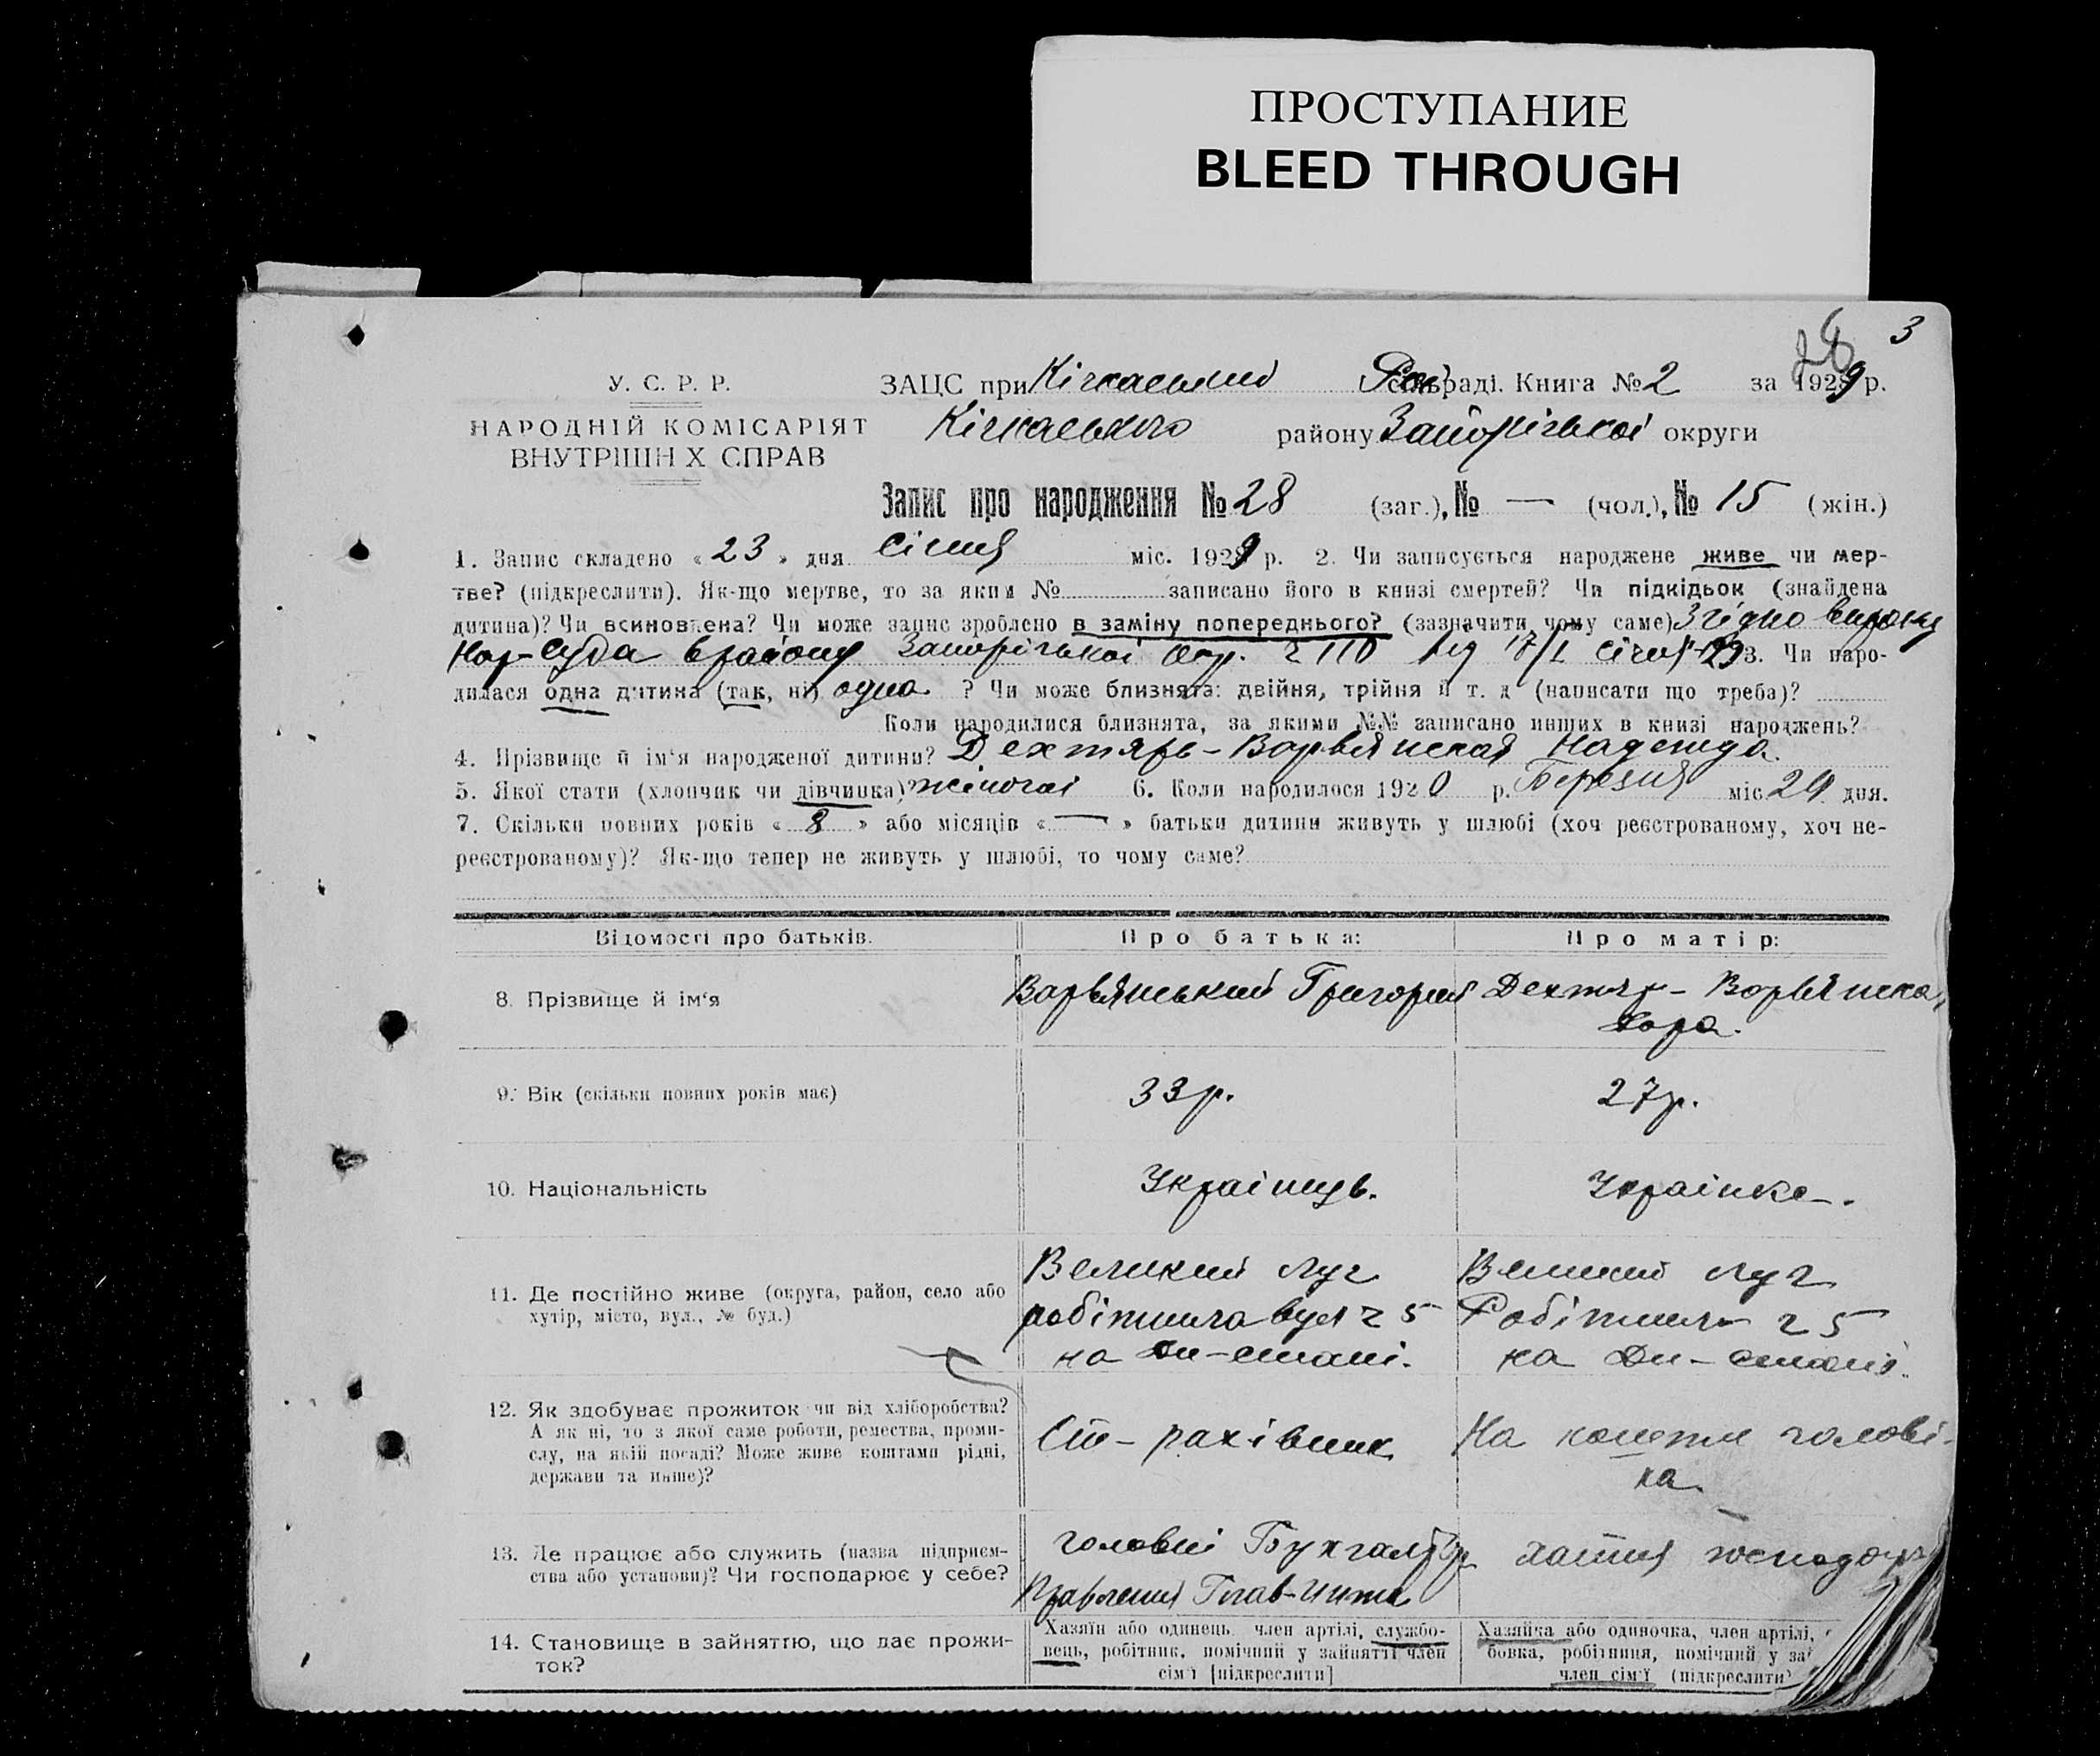 ПРОСТУПАНИЕ
BLEED THROUGH
3
28
У. С. Р. Р.
НАРОДНІЙ КОМІСАРІЯТ
ВНУТРІШНІХ СПРАВ
ЗАЦС при Кічкаській Рай сільраді. Книга № 2 за 1929 р.
Кічкаського району Запорізької округи
Запис про народження № 28 (заг.), № — (чол.), № 15 (жін.)
1. Запис складено « 23 » дня Січня міс. 1929 р. 2. Чи записується народжене живе чи мер-
тве? (підкреслити). Як-що мертве, то за яким № записано його в книзі смертей? Чи підкідьок (знайдена
дитина)? Чи всиновлена? Чи може запис зроблено в заміну попереднього? (зазначити чому саме) Згідно вироку
Нар-Суда району Запорізької Окр. від 17/I Січня 29 3. Чи наро-
дилася одна дитина (так, ні) одна ? Чи може близнята: двійня, трійня й т. д (написати що треба)?
Коли народилися близнята, за якими №№ записано инших в книзі народжень?
4. Прізвище й ім'я народженої дитини? Дехтярь-Варвянская Надежда
5. Якої стати (хлопчик чи дівчинка)? жіночої 6. Коли народилося 1920 р. Березня міс 29 дня.
7. Скільки повних років « 8 » або місяців « — » батьки дитини живуть у шлюбі (хоч реєстрованому, хоч не-
реєстрованому)? Як-що тепер не живуть у шлюбі, то чому саме?
Відомості про батьків. Про батька: Про матір:
8. Прізвище й ім'я Варвянський Григорий Дехтяр-Варвянска
9. Вік (скільки повних років має) 33 р. 27 р.
10. Національність Українць. Українка.
11. Де постійно живе (округа, район, село або
хутір, місто, вул., № буд.)
Великий Луг
робітнича вул 25
на Дн-стані.
Великий Луг
Робітнича 25
на Дн-стані.
12. Як здобуває прожиток чи від хліборобства?
А як ні, то з якої саме роботи, ремества, проми-
слу, на якій посаді? Може живе коштами рідні,
держави та инше)?
Ст-рахівник
На кошти чолові-
ка.
13. Де працює або служить (назва підприєм-
ства або установи)? Чи господарює у себе?
головні Бухгалтер
Правления
хатня господар
14. Становище в зайняттю, що дає прожи-
ток?
Хазяїн або одинець член артілі, службо-
вець, робітник, помічний у зайнятті член
сім'ї [підкреслити]
Хазяйка або одиночка, член артілі,
бовка, робітниця, помічний у за
член сім'ї (підкреслити)